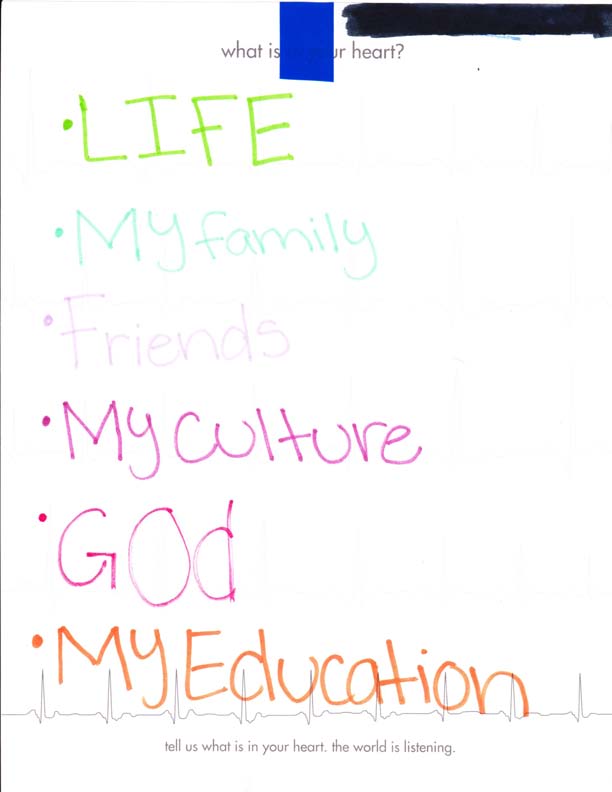 what is in your heart?
• LIFE
• My family
• Friends
• My culture
• GOd
• My Education
tell us what is in your heart. the world is listening.